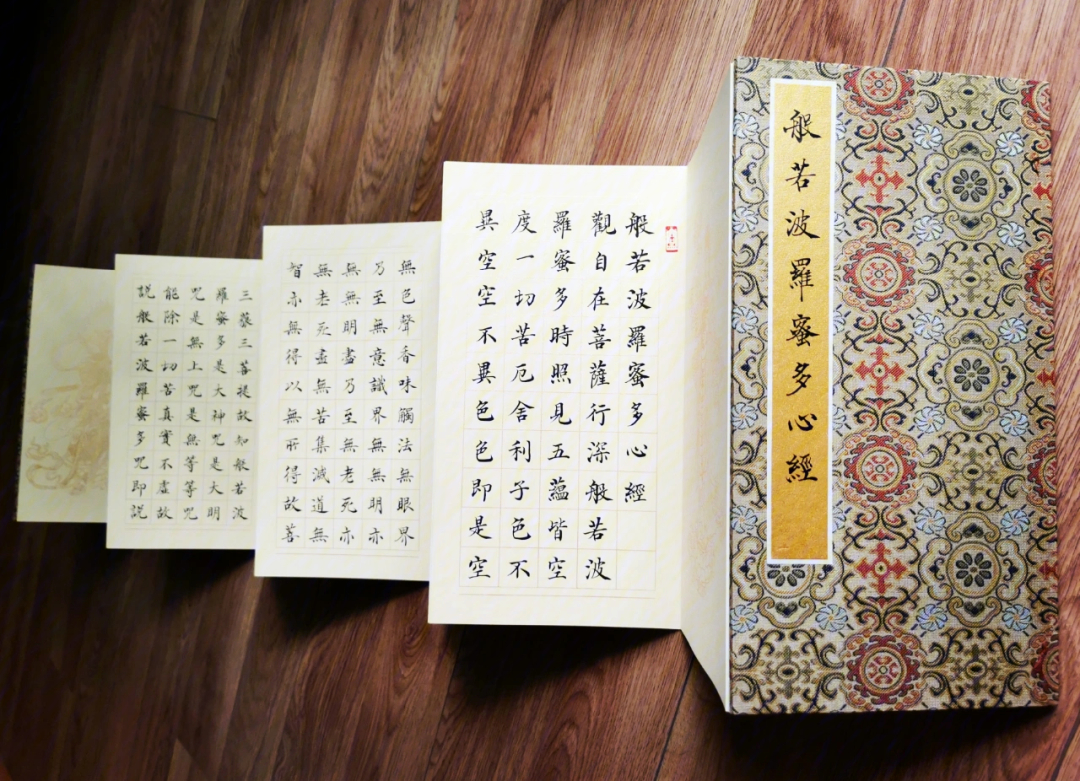 般若波羅蜜多心經
般若波羅蜜多心經
觀自在菩薩行深般若波
羅蜜多時照見五蘊皆空
度一切苦厄舍利子色不
異空空不異色色即是空
無色聲香味觸法無眼界
乃至無意識界無無明亦
無無明盡乃至無老死亦
無老死盡無苦集滅道無
智亦無得以無所得故菩
三藐三菩提故知般若波
羅蜜多是大神咒是大明
咒是無上咒是無等等咒
能除一切苦真實不虛故
說般若波羅蜜多咒即說